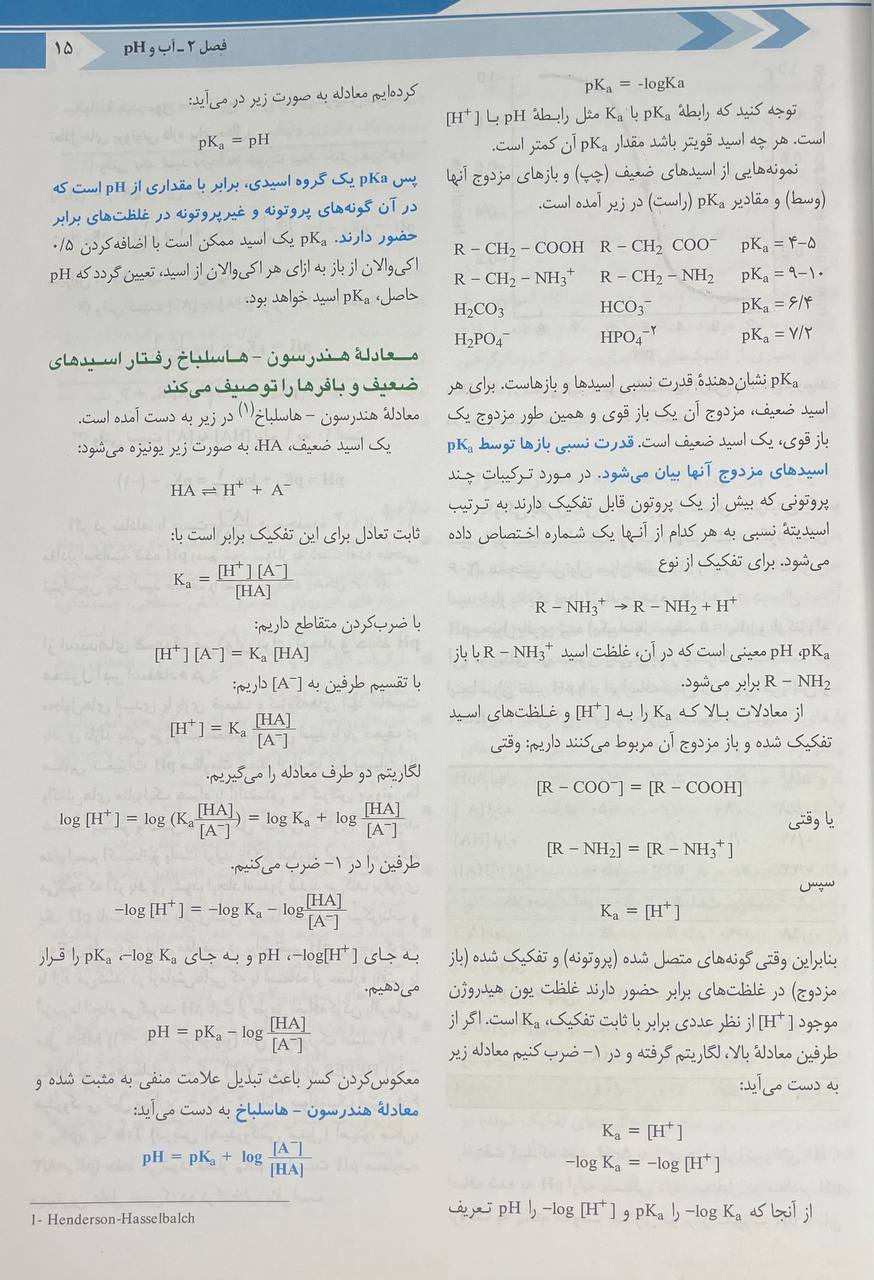 فصل ۲ ـ آب و pH
۱۵
pKa = -logKa
توجه کنید که رابطهٔ pKa با Ka مثل رابطهٔ pH با [H⁺]
است. هر چه اسید قویتر باشد مقدار pKa آن کمتر است.
نمونه‌هایی از اسیدهای ضعیف (چپ) و بازهای مزدوج آنها
(وسط) و مقادیر pKa (راست) در زیر آمده است.
R – CH₂ – COOH R – CH₂ COO⁻ pKa = ۴–۵
R – CH₂ – NH₃⁺ R – CH₂ – NH₂ pKa = ۹–۱۰
H₂CO₃ HCO₃⁻ pKa = ۶/۴
H₂PO₄⁻ HPO₄⁻² pKa = ۷/۲
pKa نشان‌دهندهٔ قدرت نسبی اسیدها و بازهاست. برای هر
اسید ضعیف، مزدوج آن یک باز قوی و همین طور مزدوج یک
باز قوی، یک اسید ضعیف است. قدرت نسبی بازها توسط pKa
اسیدهای مزدوج آنها بیان می‌شود. در مورد ترکیبات چند
پروتونی که بیش از یک پروتون قابل تفکیک دارند به ترتیب
اسیدیتهٔ نسبی به هر کدام از آنها یک شماره اختصاص داده
می‌شود. برای تفکیک از نوع
R – NH₃⁺ → R – NH₂ + H⁺
pKa، pH معینی است که در آن، غلظت اسید R – NH₃⁺ با باز
R – NH₂ برابر می‌شود.
از معادلات بالا که Ka را به [H⁺] و غلظت‌های اسید
تفکیک شده و باز مزدوج آن مربوط می‌کنند داریم: وقتی
[R – COO⁻] = [R – COOH]
یا وقتی
[R – NH₂] = [R – NH₃⁺]
سپس
Ka = [H⁺]
بنابراین وقتی گونه‌های متصل شده (پروتونه) و تفکیک شده (باز
مزدوج) در غلظت‌های برابر حضور دارند غلظت یون هیدروژن
موجود [H⁺] از نظر عددی برابر با ثابت تفکیک، Ka است. اگر از
طرفین معادلهٔ بالا، لگاریتم گرفته و در ۱- ضرب کنیم معادله زیر
به دست می‌آید:
Ka = [H⁺]
–log Ka = –log [H⁺]
از آنجا که –log Ka را pKa و –log [H⁺] را pH تعریف
کرده‌ایم معادله به صورت زیر در می‌آید:
pKa = pH
پس pKa یک گروه اسیدی، برابر با مقداری از pH است که
در آن گونه‌های پروتونه و غیرپروتونه در غلظت‌های برابر
حضور دارند. pKa یک اسید ممکن است با اضافه‌کردن ۰/۵
اکی‌والان از باز به ازای هر اکی‌والان از اسید، تعیین گردد که pH
حاصل، pKa اسید خواهد بود.
معادلهٔ هندرسون – هاسلباخ رفتار اسیدهای
ضعیف و بافرها را توصیف می‌کند
معادلهٔ هندرسون – هاسلباخ(۱) در زیر به دست آمده است.
یک اسید ضعیف، HA، به صورت زیر یونیزه می‌شود:
HA ⇌ H⁺ + A⁻
ثابت تعادل برای این تفکیک برابر است با:
Ka = [H⁺] [A⁻] / [HA]
با ضرب‌کردن متقاطع داریم:
[H⁺] [A⁻] = Ka [HA]
با تقسیم طرفین به [A⁻] داریم:
[H⁺] = Ka [HA] / [A⁻]
لگاریتم دو طرف معادله را می‌گیریم.
log [H⁺] = log (Ka [HA] / [A⁻]) = log Ka + log [HA] / [A⁻]
طرفین را در ۱- ضرب می‌کنیم.
–log [H⁺] = –log Ka – log [HA] / [A⁻]
به جای –log[H⁺]، pH و به جای –log Ka، pKa را قرار
می‌دهیم.
pH = pKa – log [HA] / [A⁻]
معکوس‌کردن کسر باعث تبدیل علامت منفی به مثبت شده و
معادلهٔ هندرسون – هاسلباخ به دست می‌آید:
pH = pKa + log [A⁻] / [HA]
1- Henderson-Hasselbalch